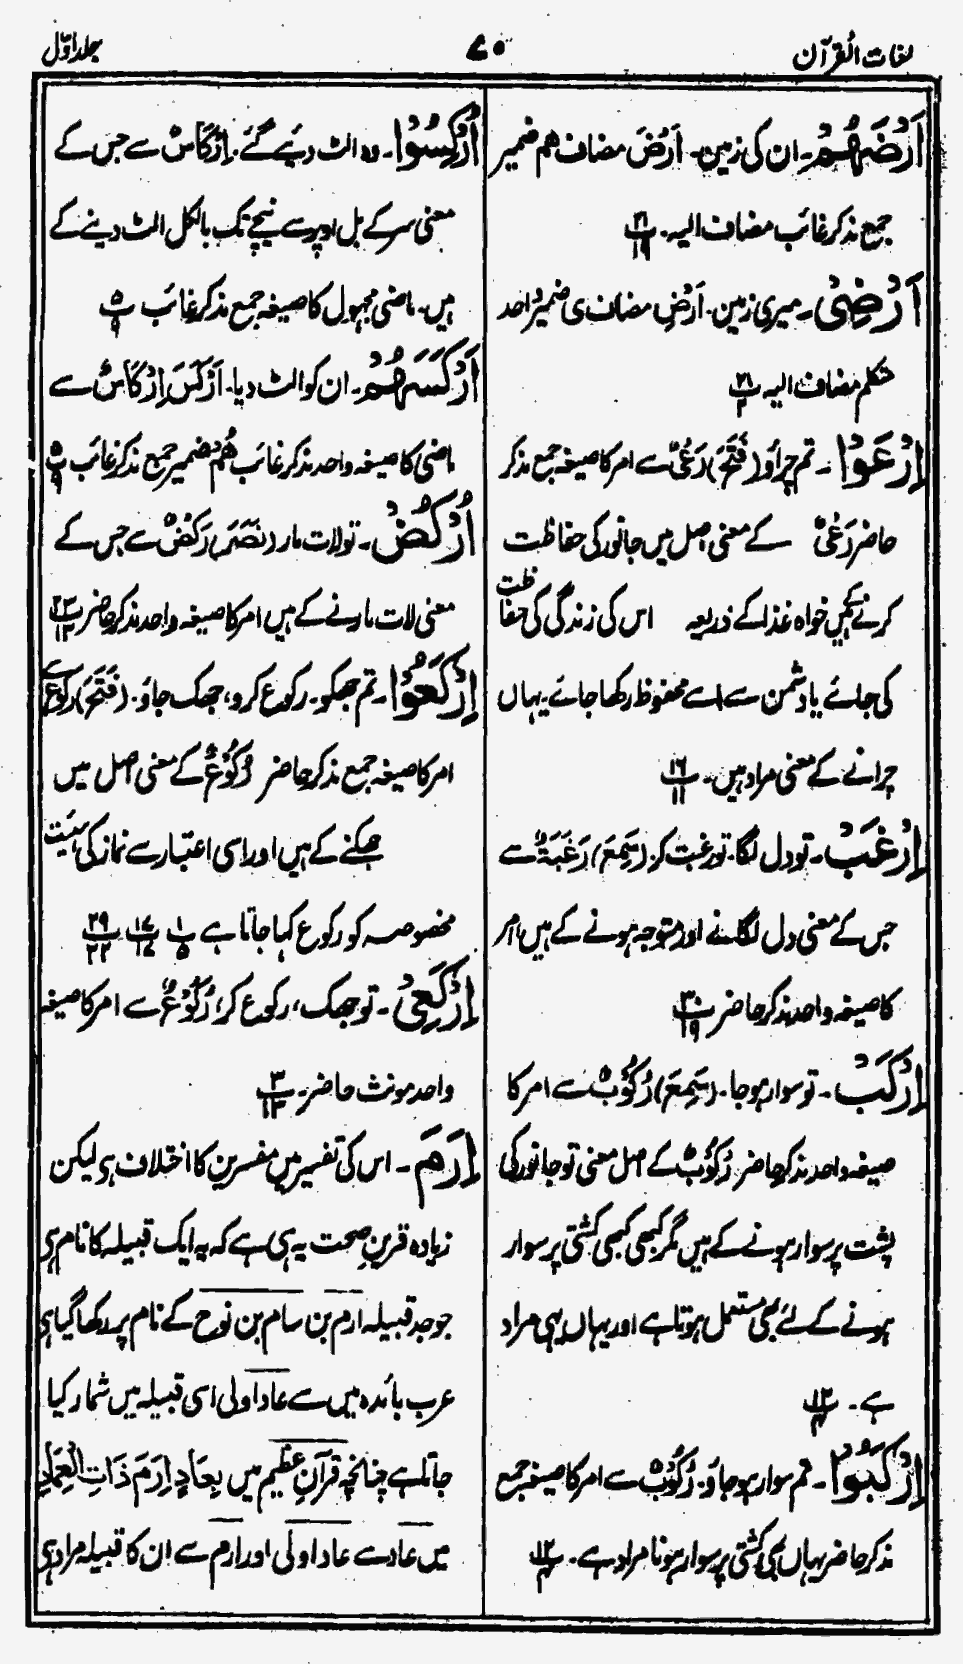 لغات القرآن
۷۰
جلد اوّل
اَرْضَهُمْ۔ ان کی زمین۔ اَرْضَ مضاف ھم ضمیر
جمع مذکر غائب مضاف الیہ۔ پ۲۱/۱۹
اَرْضِیْ۔ میری زمین۔ اَرْضِ مضاف ی ضمیر واحد
متکلم مضاف الیہ پ۲۱/۲
اِرْعَوْا۔ تم چراؤ (فَتَحَ) رَعْیٌ سے امر کا صیغہ جمع مذکر
حاضر رَعْیٌ کے معنی اصل میں جانور کی حفاظت
کرنے کے ہیں خواہ غذا کے ذریعہ اس کی زندگی کی حفاظت
کی جائے یا دشمن سے اسے محفوظ رکھا جائے یہاں
چرانے کے معنی مراد ہیں۔ پ۱۶/۱۱
اِرْغَبْ۔ تو دل لگا۔ تو رغبت کر (سَمِعَ) رَغْبَۃٌ سے
جس کے معنی دل لگانے اور متوجہ ہونے کے ہیں امر
کا صیغہ واحد مذکر حاضر پ۳۰/۱۹
اِرْکَبْ۔ تو سوار ہو جا۔ (سَمِعَ) رُکُوْبٌ سے امر کا
صیغہ واحد مذکر حاضر رُکُوْبٌ کے اصل معنی تو جانور کی
پشت پر سوار ہونے کے ہیں مگر کبھی کبھی کشتی پر سوار
ہونے کے لئے بھی مستعمل ہوتا ہے اور یہاں یہی مراد
ہے۔ پ۱۲/۴
اِرْکَبُوْا۔ تم سوار ہو جاؤ۔ رُکُوْبٌ سے امر کا صیغہ جمع
مذکر حاضر یہاں بھی کشتی پر سوار ہونا مراد ہے۔ پ۱۲/۴
اُرْکِسُوْا۔ وہ الٹ دیے گئے۔ اِرْکَاسٌ سے جس کے
معنی سر کے بل اوپر سے نیچے تک بالکل الٹ دینے کے
ہیں۔ ماضی مجہول کا صیغہ جمع مذکر غائب پ۵/۹
اَرْکَسَهُمْ۔ ان کو الٹ دیا۔ اَرْکَسَ اِرْکَاسٌ سے
ماضی کا صیغہ واحد مذکر غائب هُمْ ضمیر جمع مذکر غائب پ۵/۹
اُرْکُضْ۔ تو لات مار (نَصَرَ) رَکْضٌ سے جس کے
معنی لات مارنے کے ہیں امر کا صیغہ واحد مذکر حاضر پ۲۳/۱۲
اِرْکَعُوْا۔ تم جھکو۔ رکوع کرو، جھک جاؤ۔ (فَتَحَ) رکوع سے
امر کا صیغہ جمع مذکر حاضر رُکُوْعٌ کے معنی اصل میں
جھکنے کے ہیں اور اسی اعتبار سے نماز کی ہیئت
مخصوصہ کو رکوع کہا جاتا ہے پ۱/۵ پ۱۷/۱۷ پ۲۹/۲۲
اِرْکَعِیْ۔ تو جھک، رکوع کر، رُکُوْعٌ سے امر کا صیغہ
واحد مونث حاضر۔ پ۳/۱۳
اِرَمَ۔ اس کی تفسیر میں مفسرین کا اختلاف ہی لیکن
زیادہ قرینِ صحت یہ ہی ہے کہ یہ ایک قبیلہ کا نام ہی
جو جد قبیلہ ارم بن سام بن نوح کے نام پر رکھا گیا ہی
عرب بائدہ میں سے عاد اولی اسی قبیلہ میں شمار کیا
جاتا ہے چنانچہ قرآنِ عظیم میں بِعَادٍ اِرَمَ ذَاتِ الْعِمَادِ
میں عاد سے عاد اولی اور ارم سے ان کا قبیلہ مراد ہی